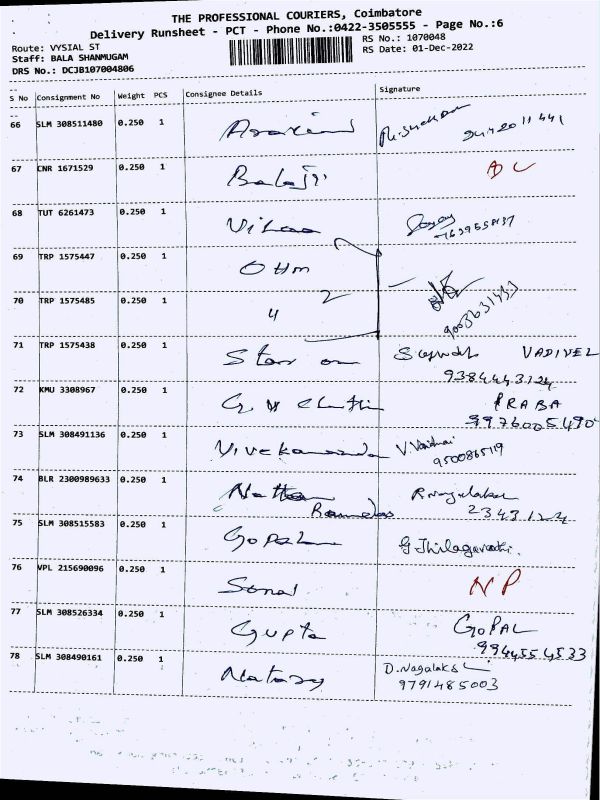 THE PROFESSIONAL COURIERS, Coimbatore
Delivery Runsheet - PCT - Phone No.:0422-3505555 - Page No.:6
Route: VYSIAL ST
RS No.: 1070048
Staff: BALA SHANMUGAM
RS Date: 01-Dec-2022
DRS No.: DCJB107004806
S No Consignment No Weight PCS Consignee Details Signature
66 SLM 308511480 0.250 1
67 CNR 1671529 0.250 1 Balaji DL
68 TUT 6261473 0.250 1
69 TRP 1575447 0.250 1 OHM
70 TRP 1575485 0.250 1 4 2
71 TRP 1575438 0.250 1 Star VADIVEL
9384443124
72 KMU 3308967 0.250 1 PRABA
9976005490
73 SLM 308491136 0.250 1 Vivekananda
950086519
74 BLR 2300989633 0.250 1
2343124
75 SLM 308515583 0.250 1 Gopal
76 VPL 215690096 0.250 1 Sonal NP
77 SLM 308526334 0.250 1 Gupta GOPAL
9944554533
78 SLM 308490161 0.250 1 D.Nagalaks
9791485003